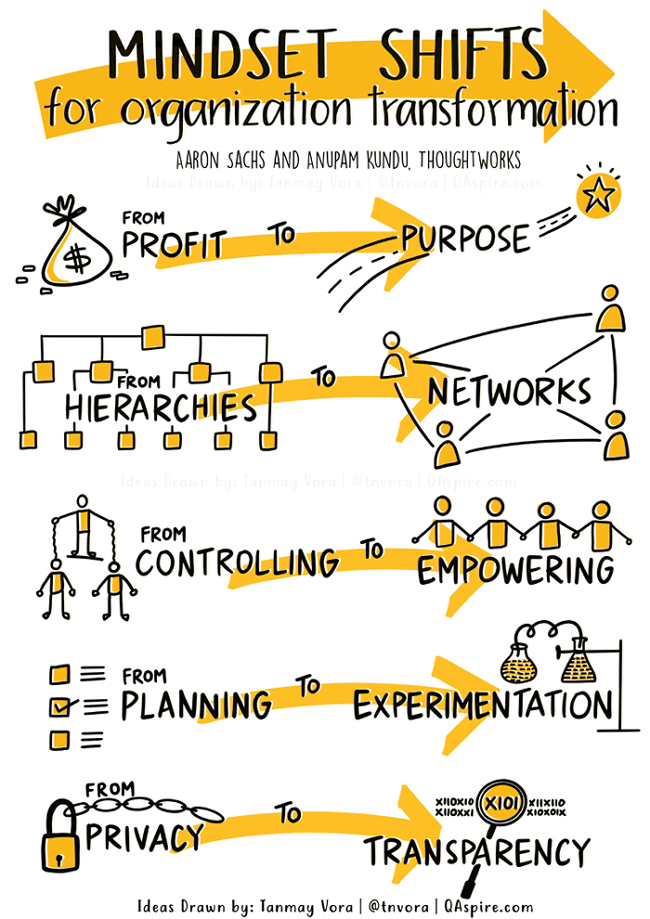 MINDSET SHIFTS
for organization transformation
AARON SACHS AND ANUPAM KUNDU, THOUGHTWORKS
Ideas Drawn by: Tanmay Vora | @tnvora | QAspire.com
FROM
PROFIT TO PURPOSE
$
FROM
HIERARCHIES TO NETWORKS
Ideas Drawn by: Tanmay Vora | @tnvora | QAspire.com
FROM
CONTROLLING TO EMPOWERING
FROM
PLANNING TO EXPERIMENTATION
FROM
PRIVACY TO TRANSPARENCY
X110X10 X101 X11X110
X110XX1 X10X01X
Ideas Drawn by: Tanmay Vora | @tnvora | QAspire.com